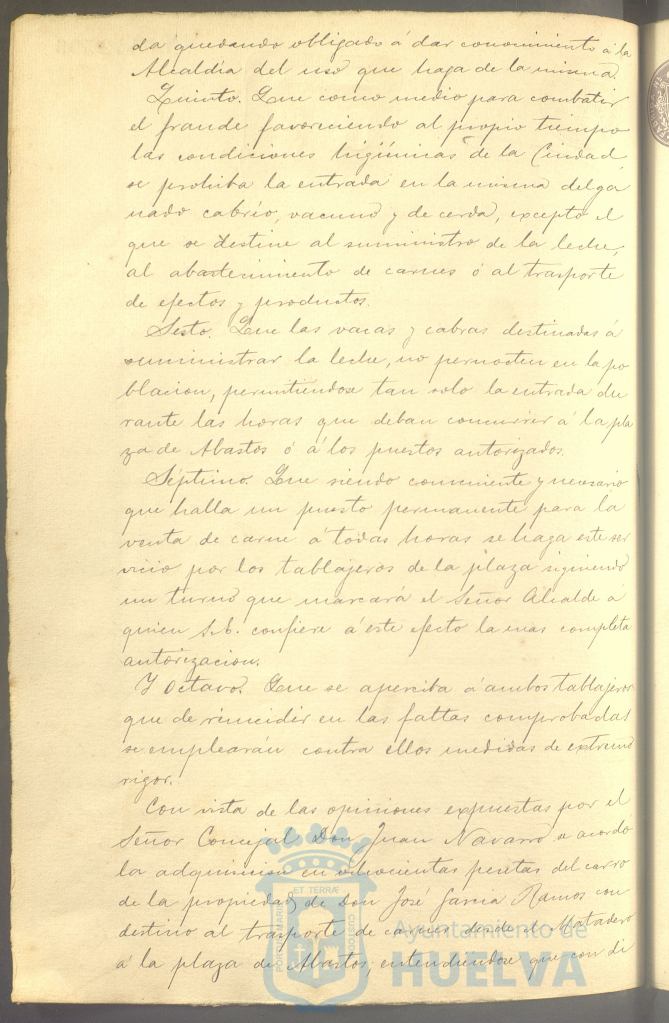 da quedando obligado á dar conocimiento á la
Alcaldia del uso que haga de la misma
Quinto. Que como medio para combatir
el fraude favoreciendo al propio tiempo
las condiciones higiénicas de la Ciudad,
se prohiba la entrada en la misma del ga
nado cabrío, vacuno y de cerda, excepto el
que se destine al suministro de la leche,
al abastecimiento de carnes ó al trasporte
de efectos y productos.
Sesto. Que las vacas y cabras destinadas á
suministrar la leche, no pernocten en la po
blacion, permitiendose tan solo la entrada du
rante las horas que deban concurrir á la pla
za de Abastos ó á los puestos autorizados.
Séptimo. Que siendo conveniente y necesario
que halla un puesto permanente para la
venta de carne á todas horas se haga este ser
vicio por los tablajeros de la plaza siguiendo
un turno que marcará el Señor Alcalde a
quien S.E. confiere á este efecto la mas completa
autorizacion.
Y Octavo. Que se aperciba á ambos tablajeros
que de reincidir en las faltas comprobadas
se emplearán contra ellos medidas de extremo
rigor.
Con vista de las opiniones expuestas por el
Señor Concejal Don Juan Navarro se acordó
la adquisicion en ochocientas pesetas del carro
de la propiedad de Don José Garcia Ramos con
destino al trasporte de carnes desde el Matadero
á la plaza de Abastos, entendiendose que con di
ET TERRÆ
PORTUS MARIS
CUSTODIA
Ayuntamiento de
HUELVA